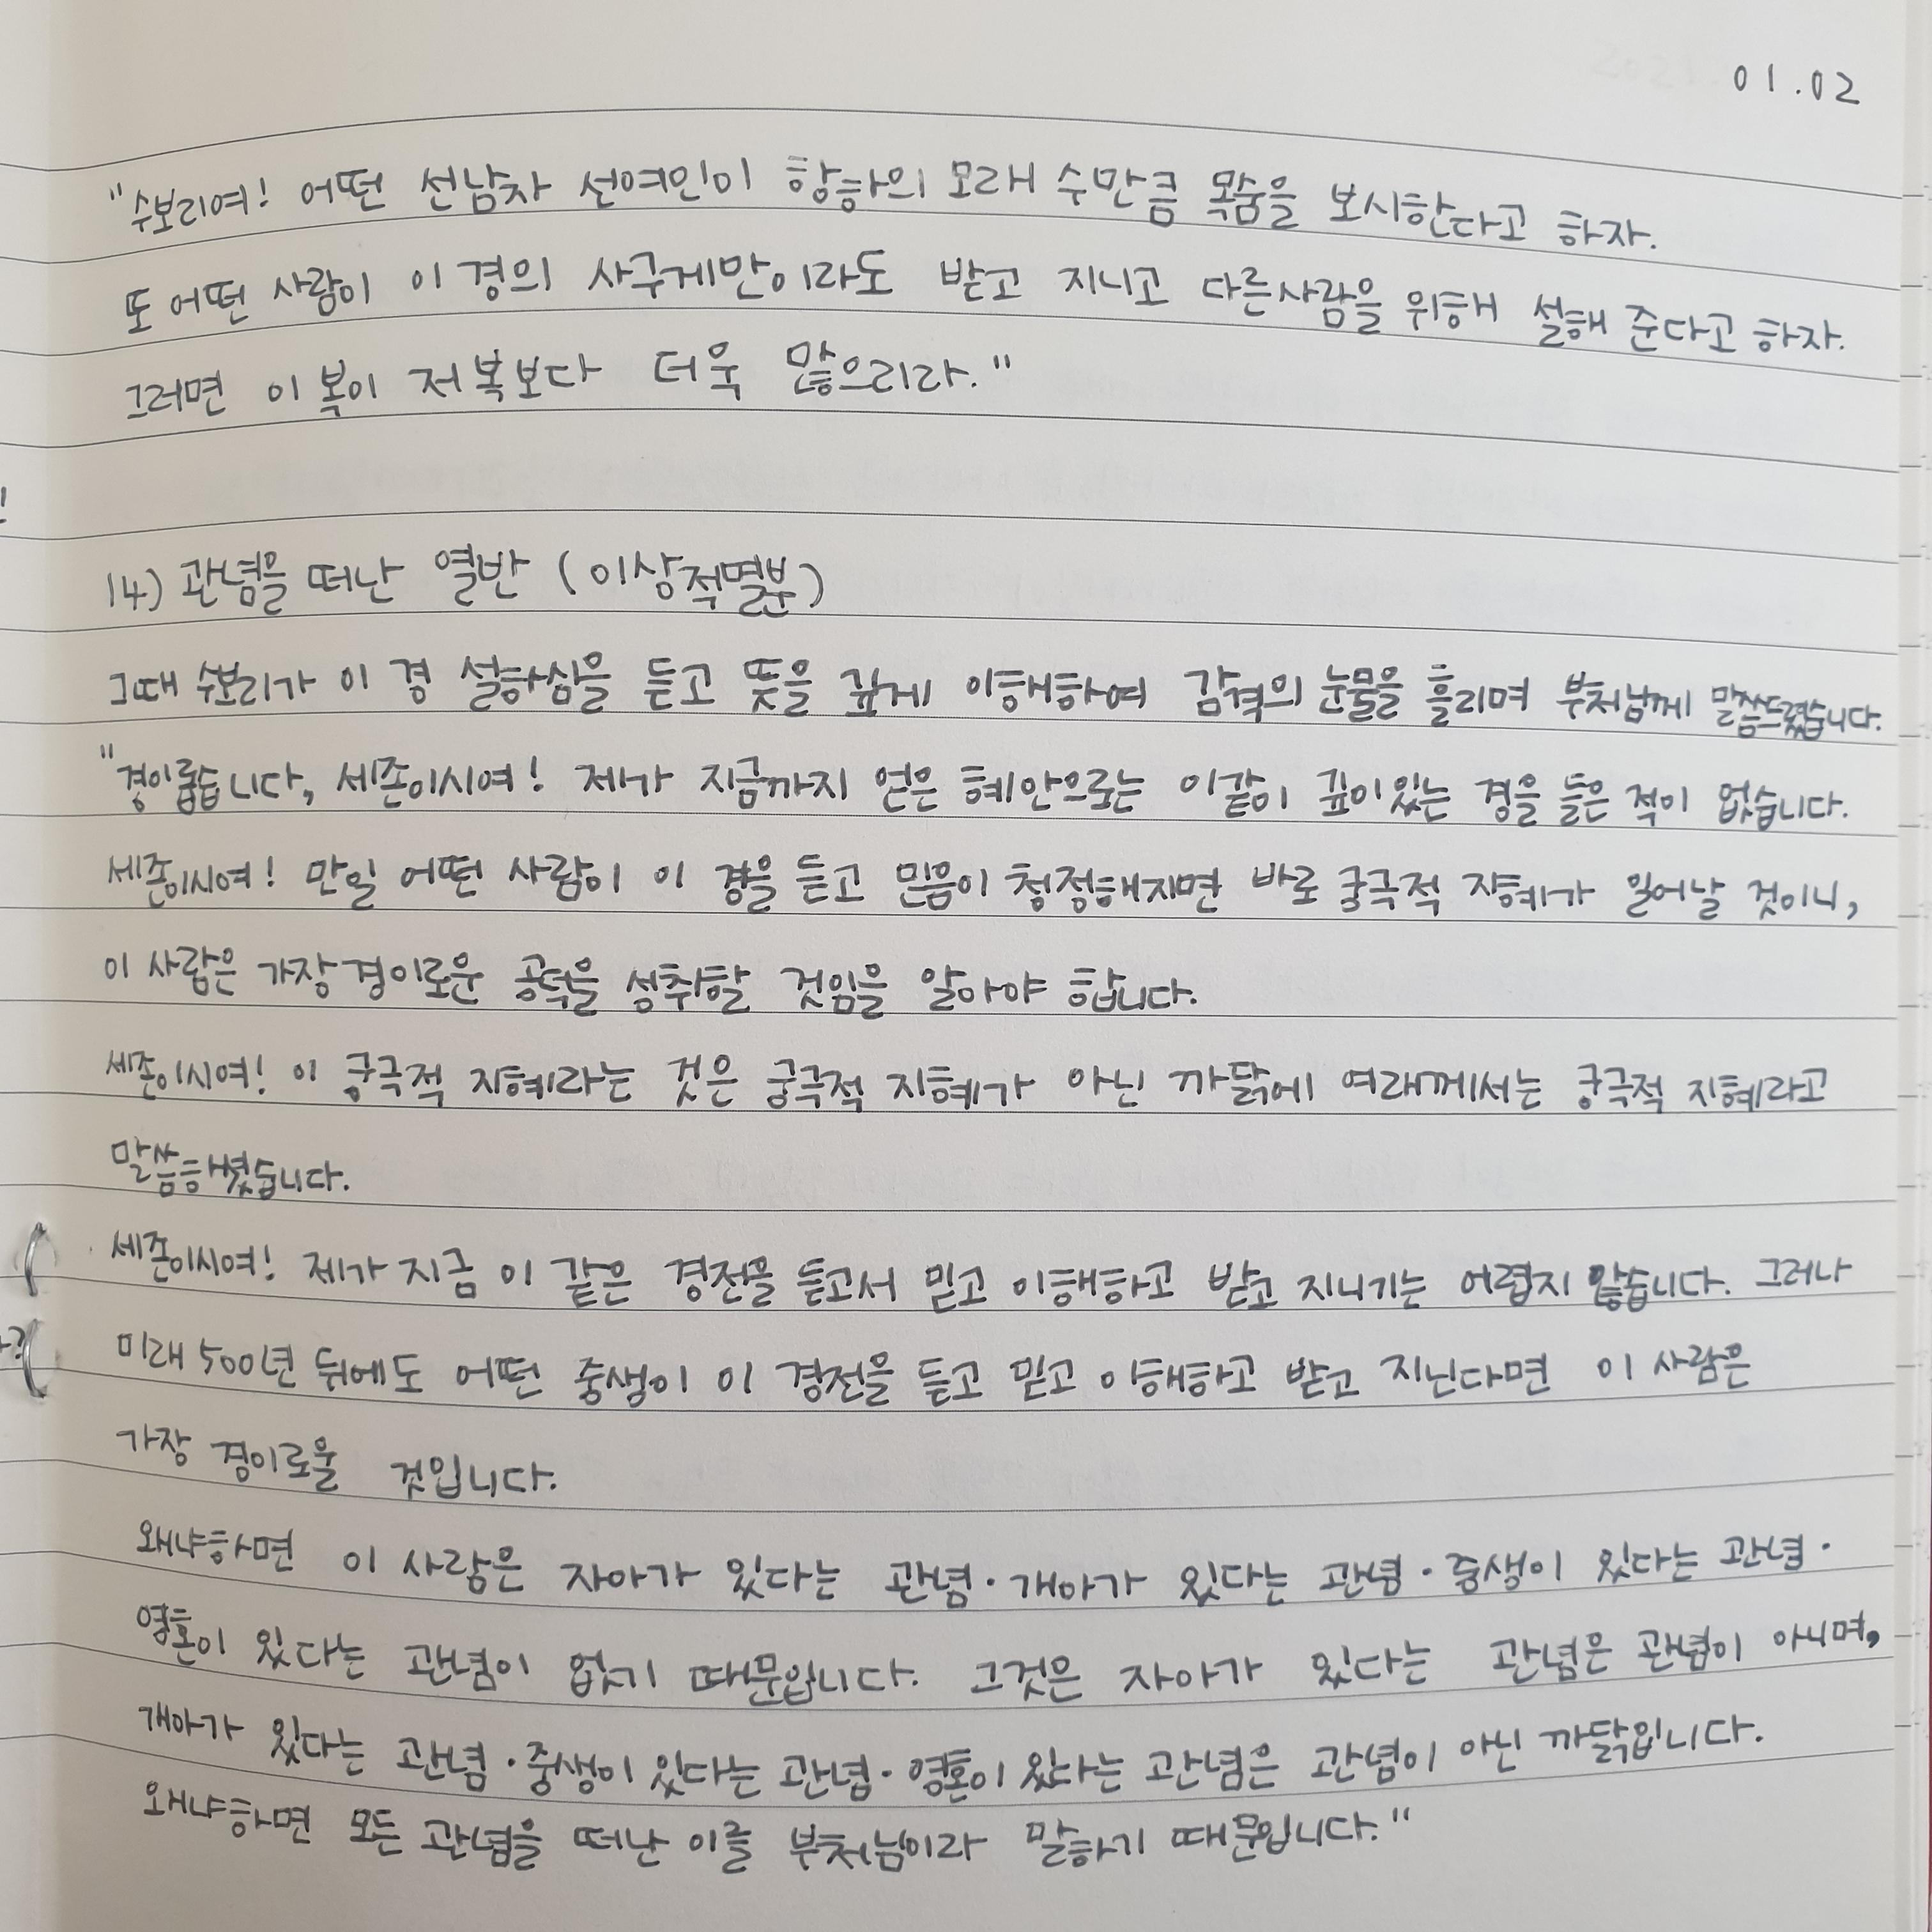 01.02
"수보리여! 어떤 선남자 선여인이 항하의 모래 수만큼 목숨을 보시한다고 하자.
또 어떤 사람이 이 경의 사구게만이라도 받고 지니고 다른사람을 위해 설해 준다고 하자.
그러면 이 복이 저 복보다 더욱 많으리라."
14) 관념을 떠난 열반 (이상적멸분)
그때 수보리가 이 경 설하심을 듣고 뜻을 깊게 이해하여 감격의 눈물을 흘리며 부처님께 말씀드렸습니다.
"경이롭습니다, 세존이시여! 제가 지금까지 얻은 혜안으로는 이같이 깊이있는 경을 들은 적이 없습니다.
세존이시여! 만일 어떤 사람이 이 경을 듣고 믿음이 청정해지면 바로 궁극적 지혜가 일어날 것이니,
이 사람은 가장 경이로운 공덕을 성취할 것임을 알아야 합니다.
세존이시여! 이 궁극적 지혜라는 것은 궁극적 지혜가 아닌 까닭에 여래께서는 궁극적 지혜라고
말씀하셨습니다.
세존이시여! 제가 지금 이 같은 경전을 듣고서 믿고 이해하고 받고 지니기는 어렵지 않습니다. 그러나
미래 500년 뒤에도 어떤 중생이 이 경전을 듣고 믿고 이해하고 받고 지닌다면 이 사람은
가장 경이로울 것입니다.
왜냐하면 이 사람은 자아가 있다는 관념·개아가 있다는 관념·중생이 있다는 관념·
영혼이 있다는 관념이 없기 때문입니다. 그것은 자아가 있다는 관념은 관념이 아니며,
개아가 있다는 관념·중생이 있다는 관념·영혼이 있다는 관념은 관념이 아닌 까닭입니다.
왜냐하면 모든 관념을 떠난 이를 부처님이라 말하기 때문입니다."